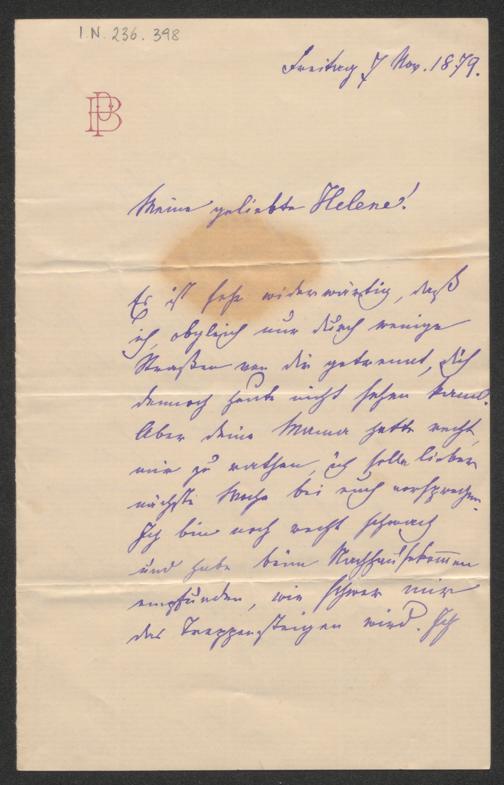 I.N. 236.398
Freitag 7 Nov. 1879.
PB
Meine geliebte Helene!
Es ist sehr widerwärtig, daß
ich, obgleich nur durch wenige
Straßen von dir getrennt, dich
dennoch heute nicht sehen kann.
Aber deine Mama hatte recht,
mir zu rathen, ich solle lieber
nächste Woche bei euch vorsprechen.
Ich bin noch recht schwach
und habe beim Nachhausekommen
empfunden, wie schwer mir
das Treppensteigen wird. Ich